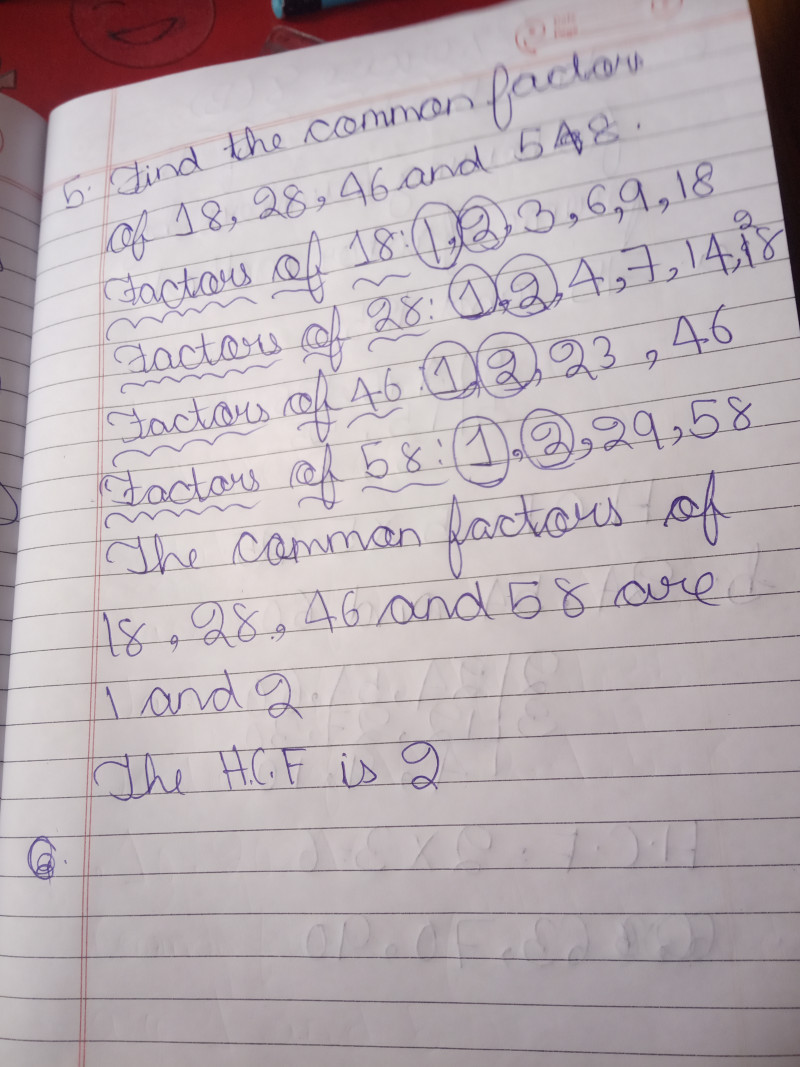 5. Find the common factors
of 18, 28, 46 and 58.
Factors of 18: 1, 2, 3, 6, 9, 18
Factors of 28: 1, 2, 4, 7, 14, 28
Factors of 46: 1, 2, 23, 46
Factors of 58: 1, 2, 29, 58
The common factors of
18, 28, 46 and 58 are
1 and 2
The H.C.F is 2
6.